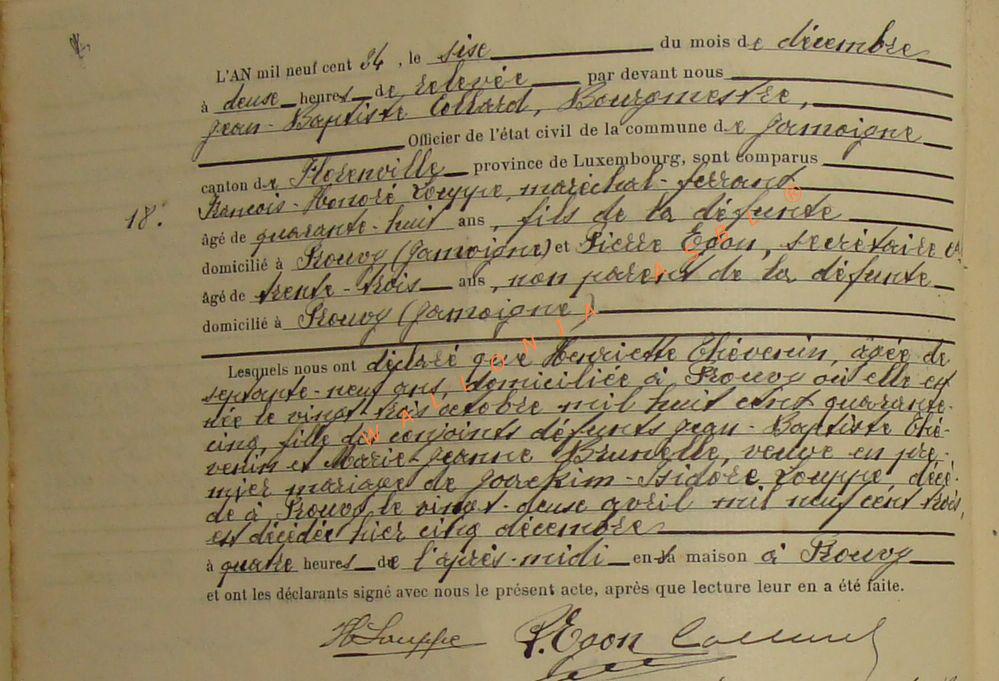 L'AN mil neuf cent 24, le sise du mois de décembre
à deuse heures de relevée par devant nous
Jean-Baptiste Collard, Bourgmestre,
Officier de l'état civil de la commune de Jamoigne
canton de Florenville province de Luxembourg, sont comparus
18.
François-Honoré Louppe, maréchal-ferrant
âgé de quarante-huit ans, fils de la défunte
domicilié à Prouvy (Jamoigne) et Pierre Egon, secrétaire
âgé de trente-trois ans, non parent de la défunte
domicilié à Prouvy (Jamoigne)
Lesquels nous ont déclaré que Henriette Thévenin, âgée de
septante-neuf ans, domiciliée à Prouvy où elle est
née le vingt-trois octobre mil huit cent quarante-
cinq, fille des conjoints défunts Jean-Baptiste Thé-
venin et Marie-Jeanne Brunelle, veuve en pre-
mier mariage de Joackim-Isidore Louppe, décé-
dé à Prouvy le vingt-deuse avril mil neuf cent trois,
est décédée hier cinq décembre
à quatre heures de l'après-midi en sa maison à Prouvy
et ont les déclarants signé avec nous le présent acte, après que lecture leur en a été faite.
H Louppe P. Egon Collard
WALLONIA ASBL ©